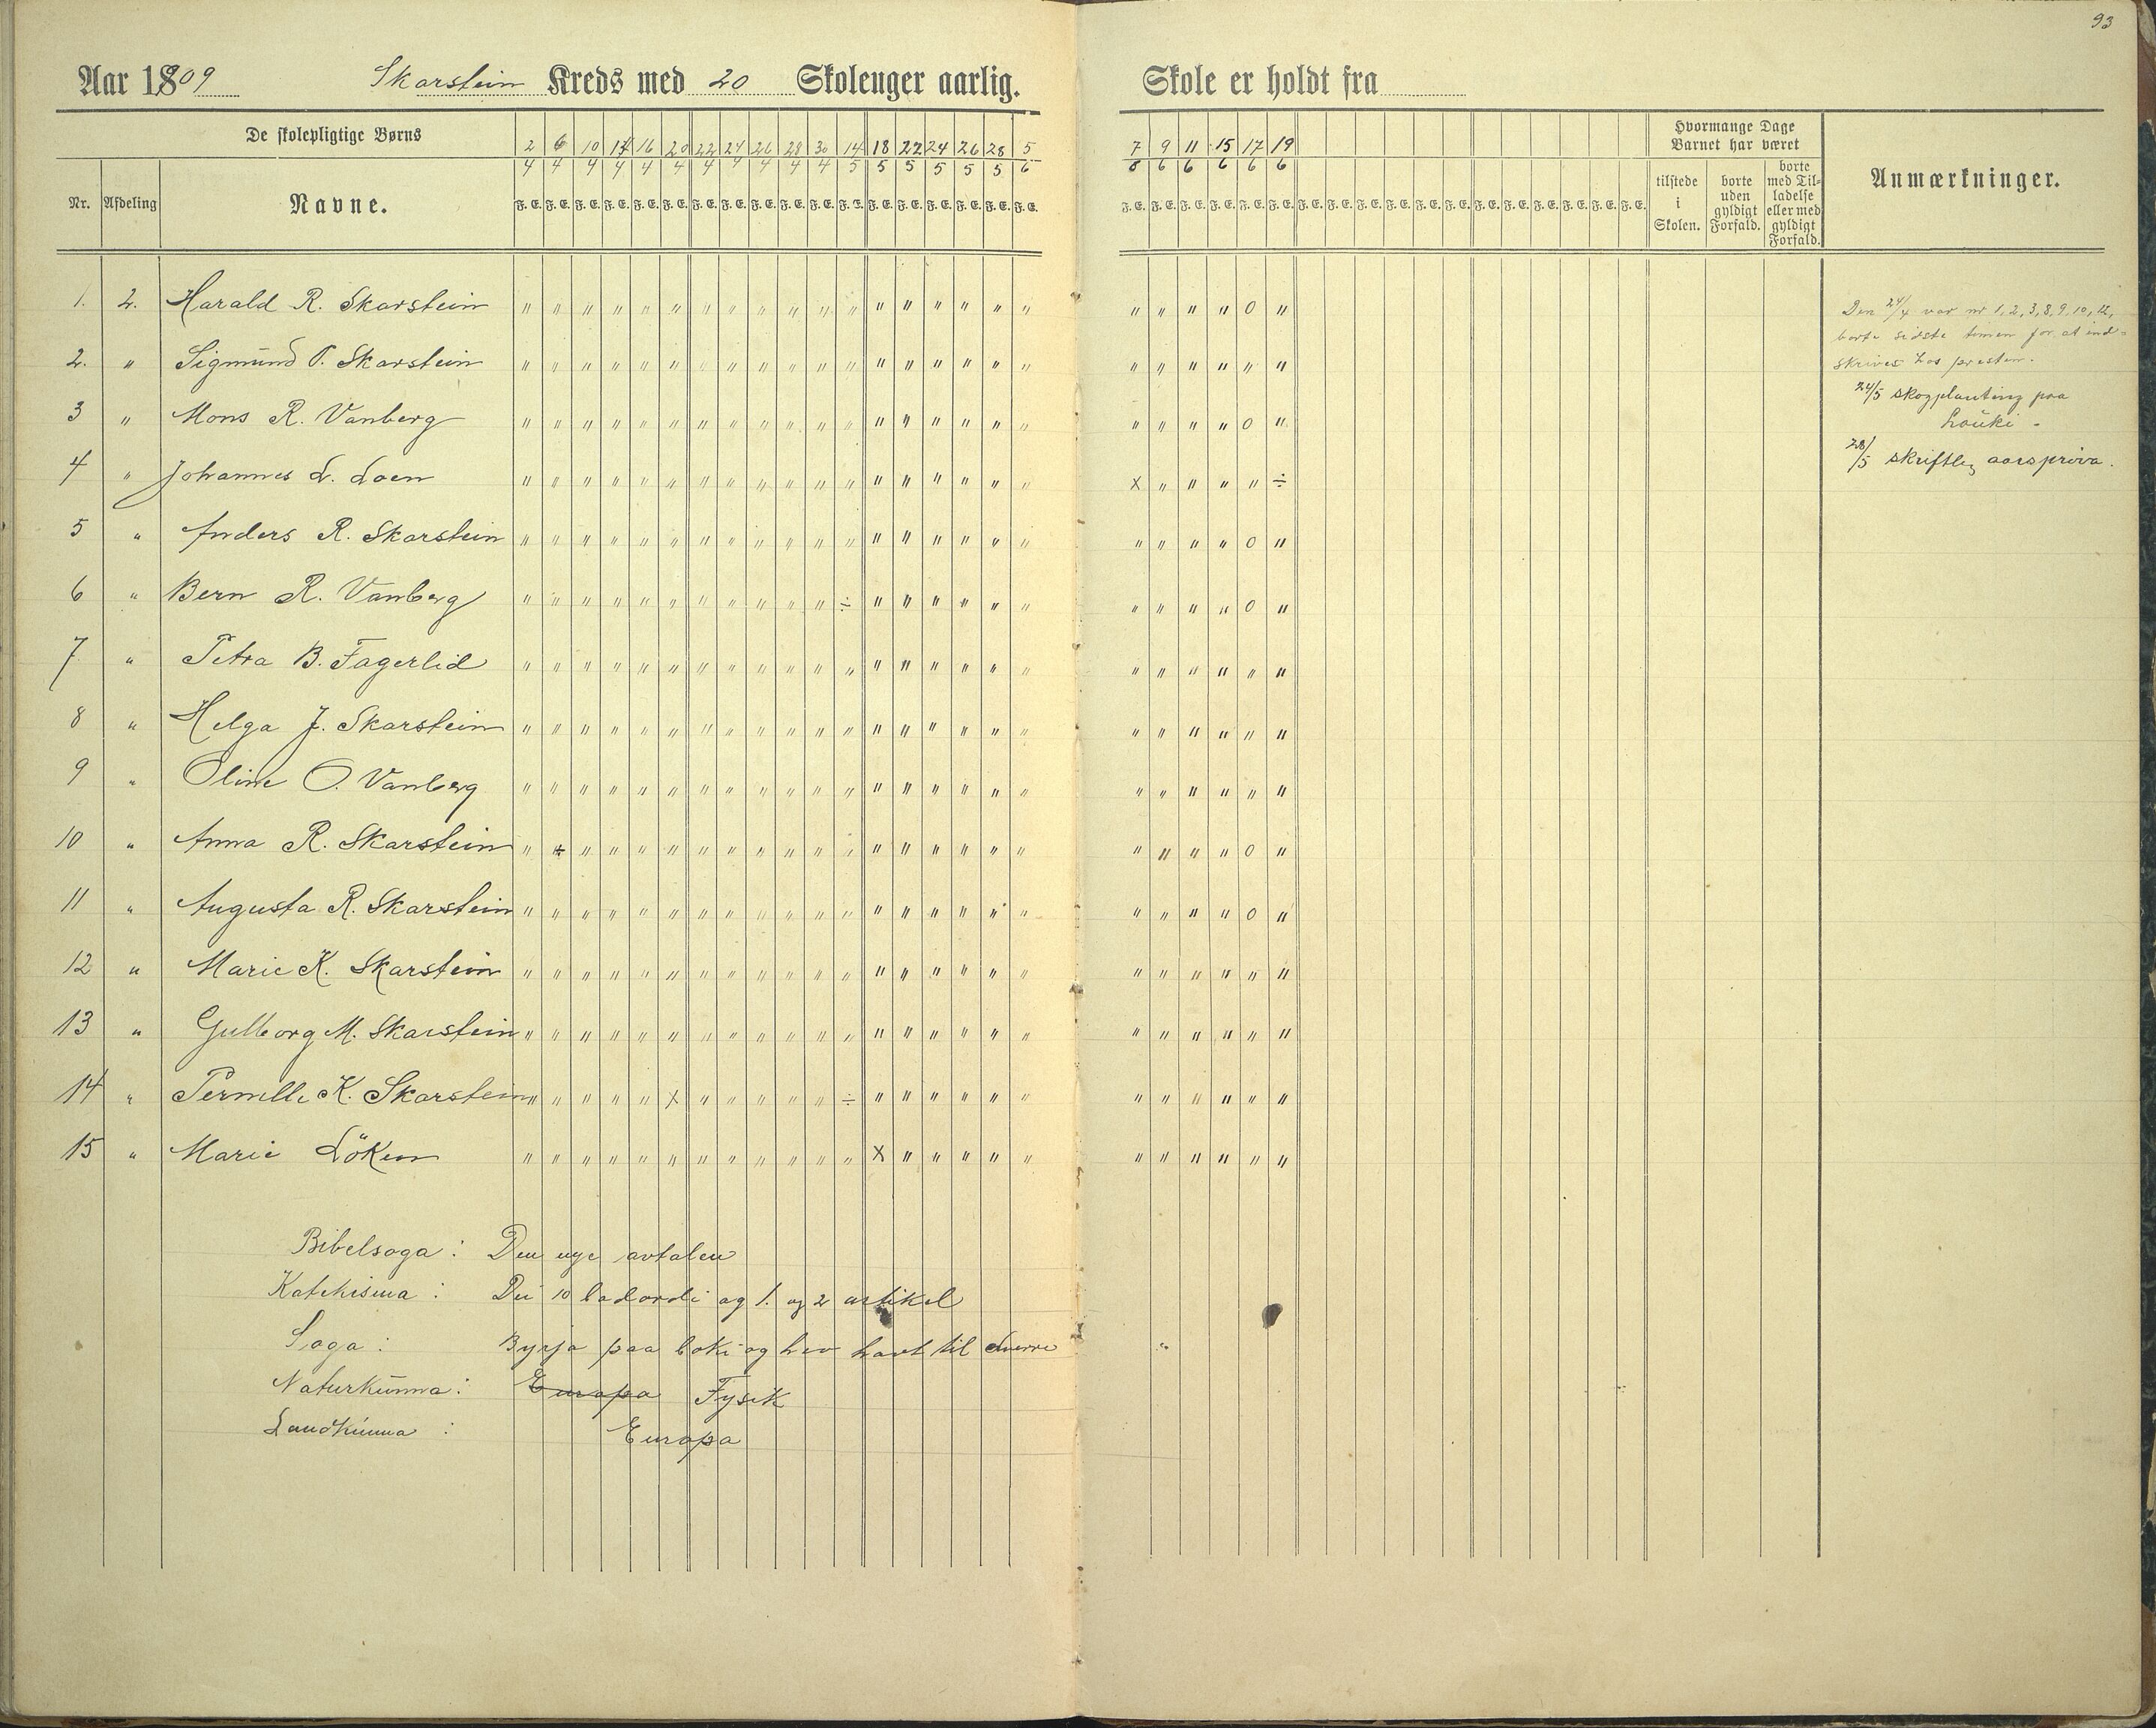 93
Aar 1909 Skarstein Kreds med 20 Skoleuger aarlig. Skole er holdt fra
De skolepligtige Børns
Nr. Afdeling Navne.
2/4 6/4 10/4 14/4 16/4 20/4 22/4 24/4 26/4 28/4 30/4 14/5 18/5 22/5 24/5 26/5 28/5 5/6
7/6 9/6 11/6 15/6 17/6 19/6
F. E. F. E. F. E. F. E. F. E. F. E. F. E. F. E. F. E. F. E. F. E. F. E. F. E. F. E. F. E. F. E. F. E. F. E.
F. E. F. E. F. E. F. E. F. E. F. E. F. E. F. E. F. E. F. E. F. E. F. E. F. E. F. E. F. E. F. E. F. E. F. E.
Hvormange Dage
Barnet har været
tilstede
i
Skolen.
borte
uden
gyldigt
Forfald.
borte
med Til-
ladelse
eller med
gyldigt
Forfald.
Anmærkninger.
1. 2. Harald R. Skarstein " " " " " " " " " " " " " " " " " " " " " " 0 "
2. " Sigmund P. Skarstein " " " " " " " " " " " " " " " " " " " " " " " "
3 " Mons R. Vanberg " " " " " " " " " " " " " " " " " " " " " " 0 "
4 " Johannes L. Loen " " " " " " " " " " " " " " " " " " x " " " " ÷
5 " Anders R. Skarstein " " " " " " " " " " " " " " " " " " " " " " 0 "
6 " Bern R. Vanberg " " " " " " " " " " " ÷ " " " " " " " " " " 0 "
7 " Petra B. Fagerlid " " " " " " " " " " " " " " " " " " " " " " " "
8 " Helga J. Skarstein " " " " " " " " " " " " " " " " " " " " " " " "
9 " Oline O. Vanberg " " " " " " " " " " " " " " " " " " " " " " " "
10 " Anna R. Skarstein " ÷ " " " " " " " " " " " " " " " " " " " " 0 "
11 " Augusta R. Skarstein " " " " " " " " " " " " " " " " " " " " " " 0 "
12 " Marie K. Skarstein " " " " " " " " " " " " " " " " " " " " " " " "
13 " Gulborg M. Skarstein " " " " " " " " " " " " " " " " " " " " " " " "
14 " Pernille K. Skarstein " " " " " x " " " " " ÷ " " " " " " " " " " " "
15 " Marie Löken " " " " " " " " " " " " x " " " " " " " " " " "
Den 24/4 var nr 1, 2, 3, 8, 9, 10, 12,
borte sidste timen for at ind-
skrives hos presten.
24/5 skogplanting paa
Louki.
28/5 skriftleg aarsprøva.
Bibelsoga: Den nye avtalen
Katekisma: Dei 10 bodordi og 1. og 2 artikel
Soga: Byrja paa boki og hev havt til Sverre
Naturkunna: Europa Fysik
Landkunna: Europa